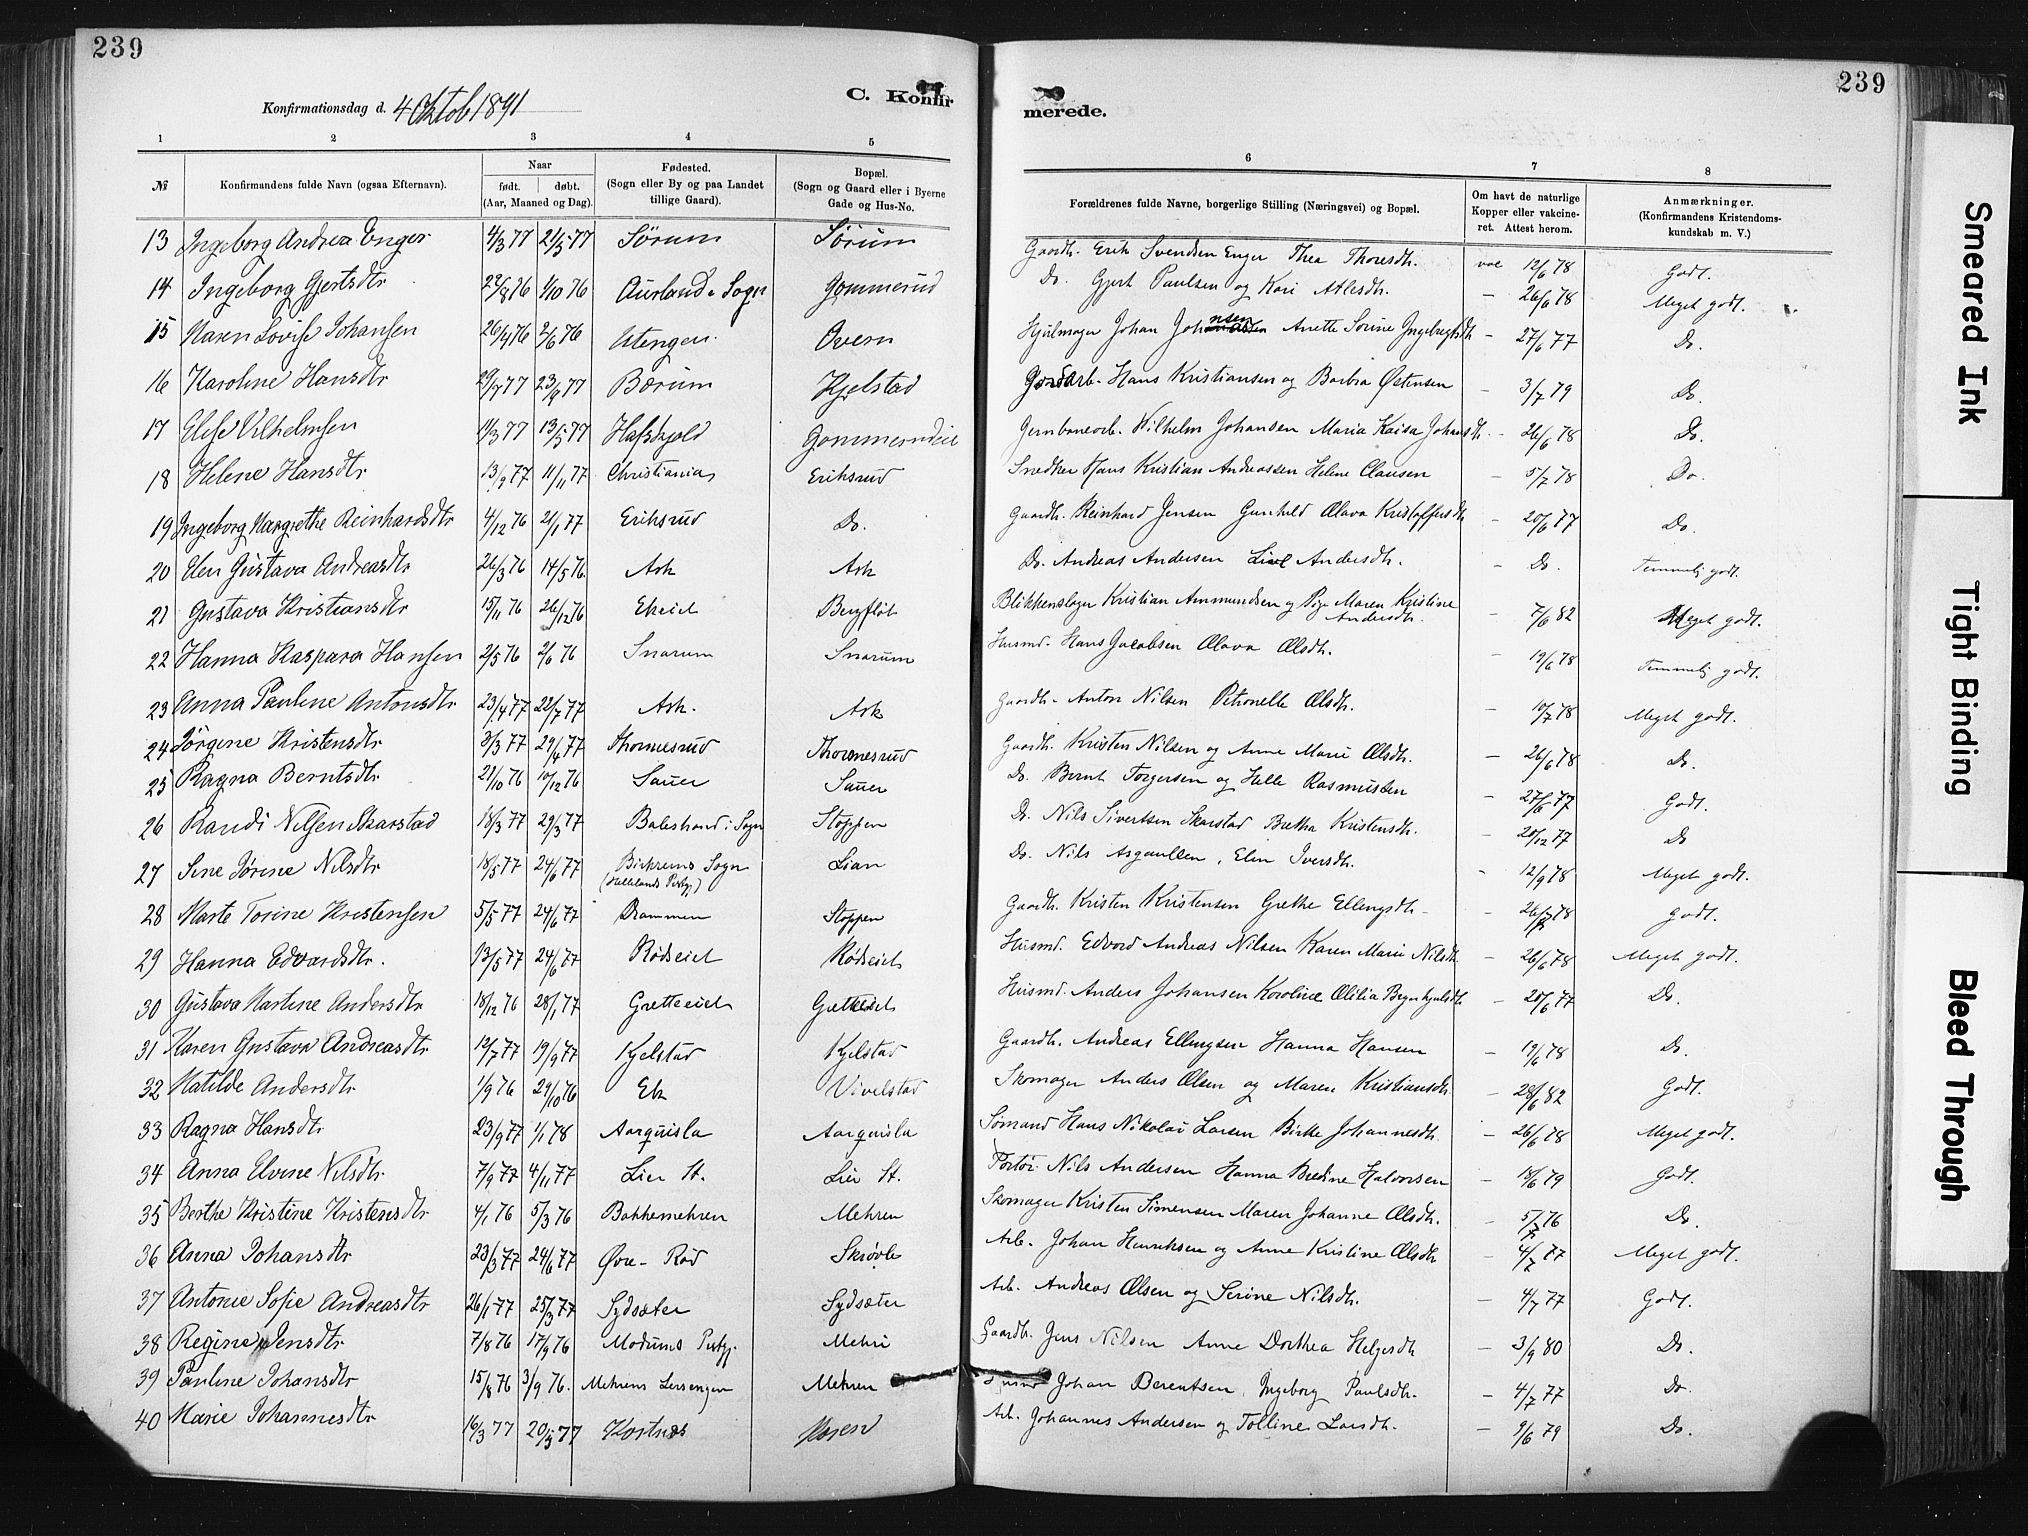 239
239
Konfirmationsdag d. 4 Oktob 1891
C. Konfir
merede.
1 2 3 4 5 6 7 8
№ Konfirmandens fulde Navn (ogsaa Efternavn). Naar født. døbt. (Aar, Maaned og Dag). Fødested. (Sogn eller By og paa Landet tillige Gaard). Bopæl. (Sogn og Gaard eller i Byerne Gade og Hus-No. Forældrenes fulde Navne, borgerlige Stilling (Næringsvei) og Bopæl. Om havt de naturlige Kopper eller vakcineret. Attest herom. Anmærkninger. (Konfirmandens Kristendomskundskab m. V.)
13 Ingeborg Andrea Enger 4/3 77 21/5 77 Sørum Sørum Gaardb. Erik Svendsen Enger Thea Thoresdtr. vac 12/6 78 Godt.
14 Ingeborg Gjertsdtr 22/8 76 1/10 76 Aurland i Sogn Gommerud Do. Gjert Paulsen og Kari Atlesdtr. - 26/6 78 Meget godt.
15 Maren Lovise Johansen 26/4 76 2/6 76 Utengen Overn Hjulmager Johan Johansen Anette Sorine - 27/6 77 Do.
16 Karoline Hansdtr 29/7 77 23/9 77 Bærum Kjelstad Gaardarb. Hans Kristiansen og Barbra Østensen - 3/7 79 Do.
17 Elise Vilhelmsen 11/3 77 13/5 77 Hafskjold Jernbanearb. Wilhelm Johansen Maria Kaisa Johansdtr. - 26/6 78 Do.
18 Helene Hansdtr 13/9 77 11/11 77 Christiania Eriksrud Snedker Hans Kristian Andreassen Helene Clausen - 5/7 78 Do.
19 Ingeborg Margrethe Reinhardsdtr 4/12 76 21/1 77 Eriksrud Do. Gaardb. Reinhard Jensen Gunhild Olava Kristoffersdtr - 20/6 77 Do.
20 Elen Gustava Andreasdtr 26/3 76 14/5 76 Ask Ask Do. Andreas Andersen Andersdtr. - Do. Temmelig godt.
21 Gustava Kristiansdtr 15/11 76 26/12 76 Ekeiet Bergfløt Blikkenslager Kristian Ammundsen og Pige Maren Kristine Andersdtr. - 7/6 82 Meget godt.
22 Hanna Kaspara Hansen 2/5 76 2/6 76 Snarum Snarum Husmd. Hans Jacobsen Olava Olsdtr. - 19/6 78 Temmelig godt.
23 Anna Pauline Antonsdtr 23/4 77 22/7 77 Ask. Ask Gaardb. Anton Nilsen Petronelle Olsdtr. - 10/7 78 Meget godt.
24 Jørgine Kristensdtr 3/3 77 29/4 77 Thornesrud Thornesrud Gaardb. Kristen Nilsen og Anne Marie Olsdtr. - 26/6 78 Do.
25 Ragna Berntsdtr 21/10 76 10/12 76 Sauer Sauer Do. Bernt Torgersen og Helle Rasmussen - 27/6 77 Godt.
26 Randi Nilsen Skarstad 18/3 77 29/3 77 Balestrand i Sogn Stoppen Do. Nils Sivertsen Skarstad Bretha Kristensdtr. - 20/12 77 Do
27 Sine Jørine Nilsdtr 18/5 77 24/6 77 Birkrems Sogn (Hellelands Prstgj.) Lian Do. Nils Asgautsen, Elen Iversdtr. - 12/9 78 Meget godt.
28 Marte Torine Kristensen 5/5 77 24/6 77 Drammen Stoppen Gaardb. Kristen Kristensen Grethe Ellingsdtr - 26/7 78 Godt.
29 Hanna Edvardsdtr. 13/5 77 24/6 77 Rødseiet Rødseiet Husmd. Edvard Andreas Nilsen Karen Marie Nilsdtr - 26/6 78 Meget godt.
30 Gustava Martine Andersdtr 18/12 76 28/1 77 Gretteeiet Gretteeiet Husmd. Anders Johansen Karoline Otilia - 20/6 77 Do.
31 Karen Gustava Andreasdtr. 12/7 77 19/9 77 Kjelstad Kjelstad Gaardb. Andreas Ellingsen Hanna Hansen - 19/6 78 Do.
32 Matilde Andersdtr 1/9 76 29/10 76 Ek Vivelstad Skomager Anders Olsen og Maren Kristiansdtr. - 28/6 82 Godt.
33 Ragna Hansdtr 23/9 77 1/1 78 Aarquisla Aarquisla Sømand Hans Nikolai Larsen Birte Johannesdtr. - 26/6 78 Meget godt.
34 Anna Elvine Nilsdtr. 7/9 77 4/11 77 Lier St. Lier St. Portør. Nils Andersen Hanna Bredine Halvorsen - 18/6 79 Godt.
35 Berthe Kristine Kristensdtr 4/1 76 5/3 76 Bakkemehren Mehren Skomager Kristen Simensen Maren Johanne Olsdtr. - 5/7 76 Do.
36 Anna Johansdtr 23/3 77 24/6 77 Øvre-Rød Skrøvle Arb. Johan Henriksen og Anne Kristine Olsdtr - 4/7 77 Meget godt.
37 Antonie Sofie Andreasdtr 26/1 77 25/3 77 Sydsæter Sydsæter Arb. Andreas Olsen og Serine Nilsdtr. - 4/7 77 Godt.
38 Regine Jensdtr 7/8 76 17/9 76 Modums Prstgj. Mehri Gaardb. Jens Nilsen Anne Dorthea Helgesdtr - 3/9 80 Do.
39 Pauline Johansdtr 15/8 76 3/9 76. Mehrens Mehren Johan Berentsen, Ingeborg Paulsdtr. - 4/7 77 Do.
40 Marie Johannesdtr 16/3 77 20/5 77 Kortnes Arb. Johannes Andersen og Tolline Larsdtr. - 9/6 79 Do.
Smeared Ink
Tight Binding
Bleed Through